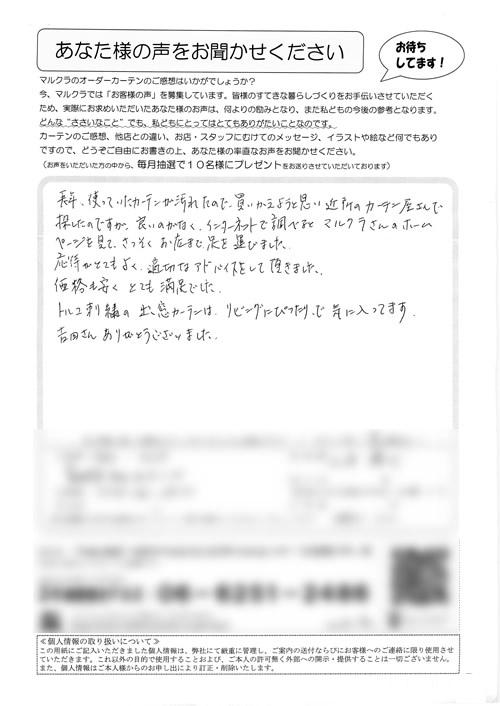 あなた様の声をお聞かせください
お待ち
してます!
マルクラのオーダーカーテンのご感想はいかがでしょうか?
今、マルクラでは「お客様の声」を募集しています。皆様のすてきな暮らしづくりをお手伝いさせていただく
ため、実際にお求めいただいたあなた様のお声は、何よりの励みとなり、また私どもの今後の参考となります。
どんな“ささいなこと”でも、私どもにとってはとてもありがたいことなのです。
カーテンのご感想、他店との違い、お店・スタッフにむけてのメッセージ、イラストや絵など何でもあり
ですので、どうぞご自由にお書きの上、あなた様の率直なお声をお聞かせください。
(お声をいただいた方の中から、毎月抽選で10名様にプレゼントをお送りさせていただいております)
長年、使っていたカーテンが汚れたので、買いかえようと思い近所のカーテン屋さんで
探したのですが、良いのがなく、インターネットで調べると マルクラさんのホーム
ページを見て、さっそくお店まで足を運びました。
応待がとてもよく、適切なアドバイスをして頂きました。
価格も安く とても満足でした。
トルコ刺繍の出窓カーテンは、リビングにぴったりで気に入ってます。
吉田さんありがとうございました。
≪個人情報の取り扱いについて≫
この用紙にご記入いただきました個人情報は、弊社にて厳重に管理し、ご案内の送付ならびにお客様へのご連絡に限り使用させ
ていただきます。これ以外の目的で使用することおよび、ご本人の許可無く外部への開示・提供することは一切ございません。
また、個人情報はご本人様からのお申し出により訂正・削除いたします。